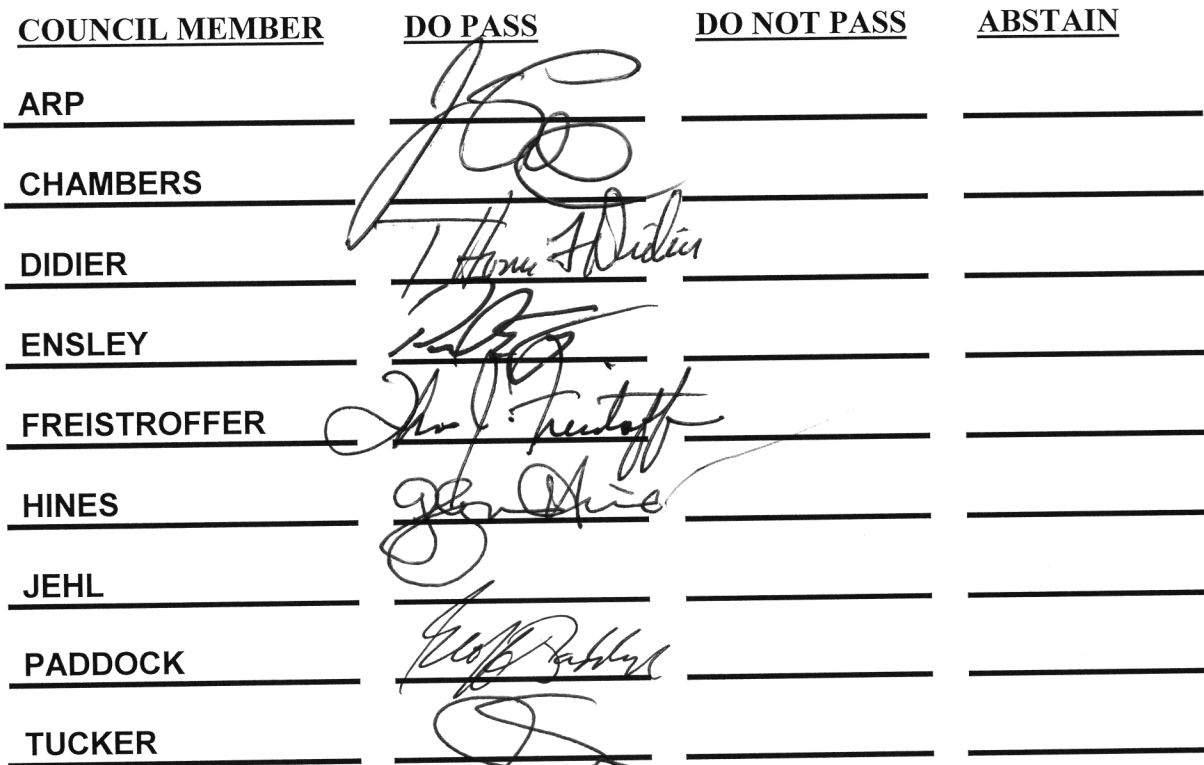 COUNCIL MEMBER DO PASS DO NOT PASS ABSTAIN
ARP
CHAMBERS
DIDIER Thom F Didier
ENSLEY
FREISTROFFER Thos J. Freistroffer
HINES Glynn Hines
JEHL
PADDOCK Geoff Paddock
TUCKER